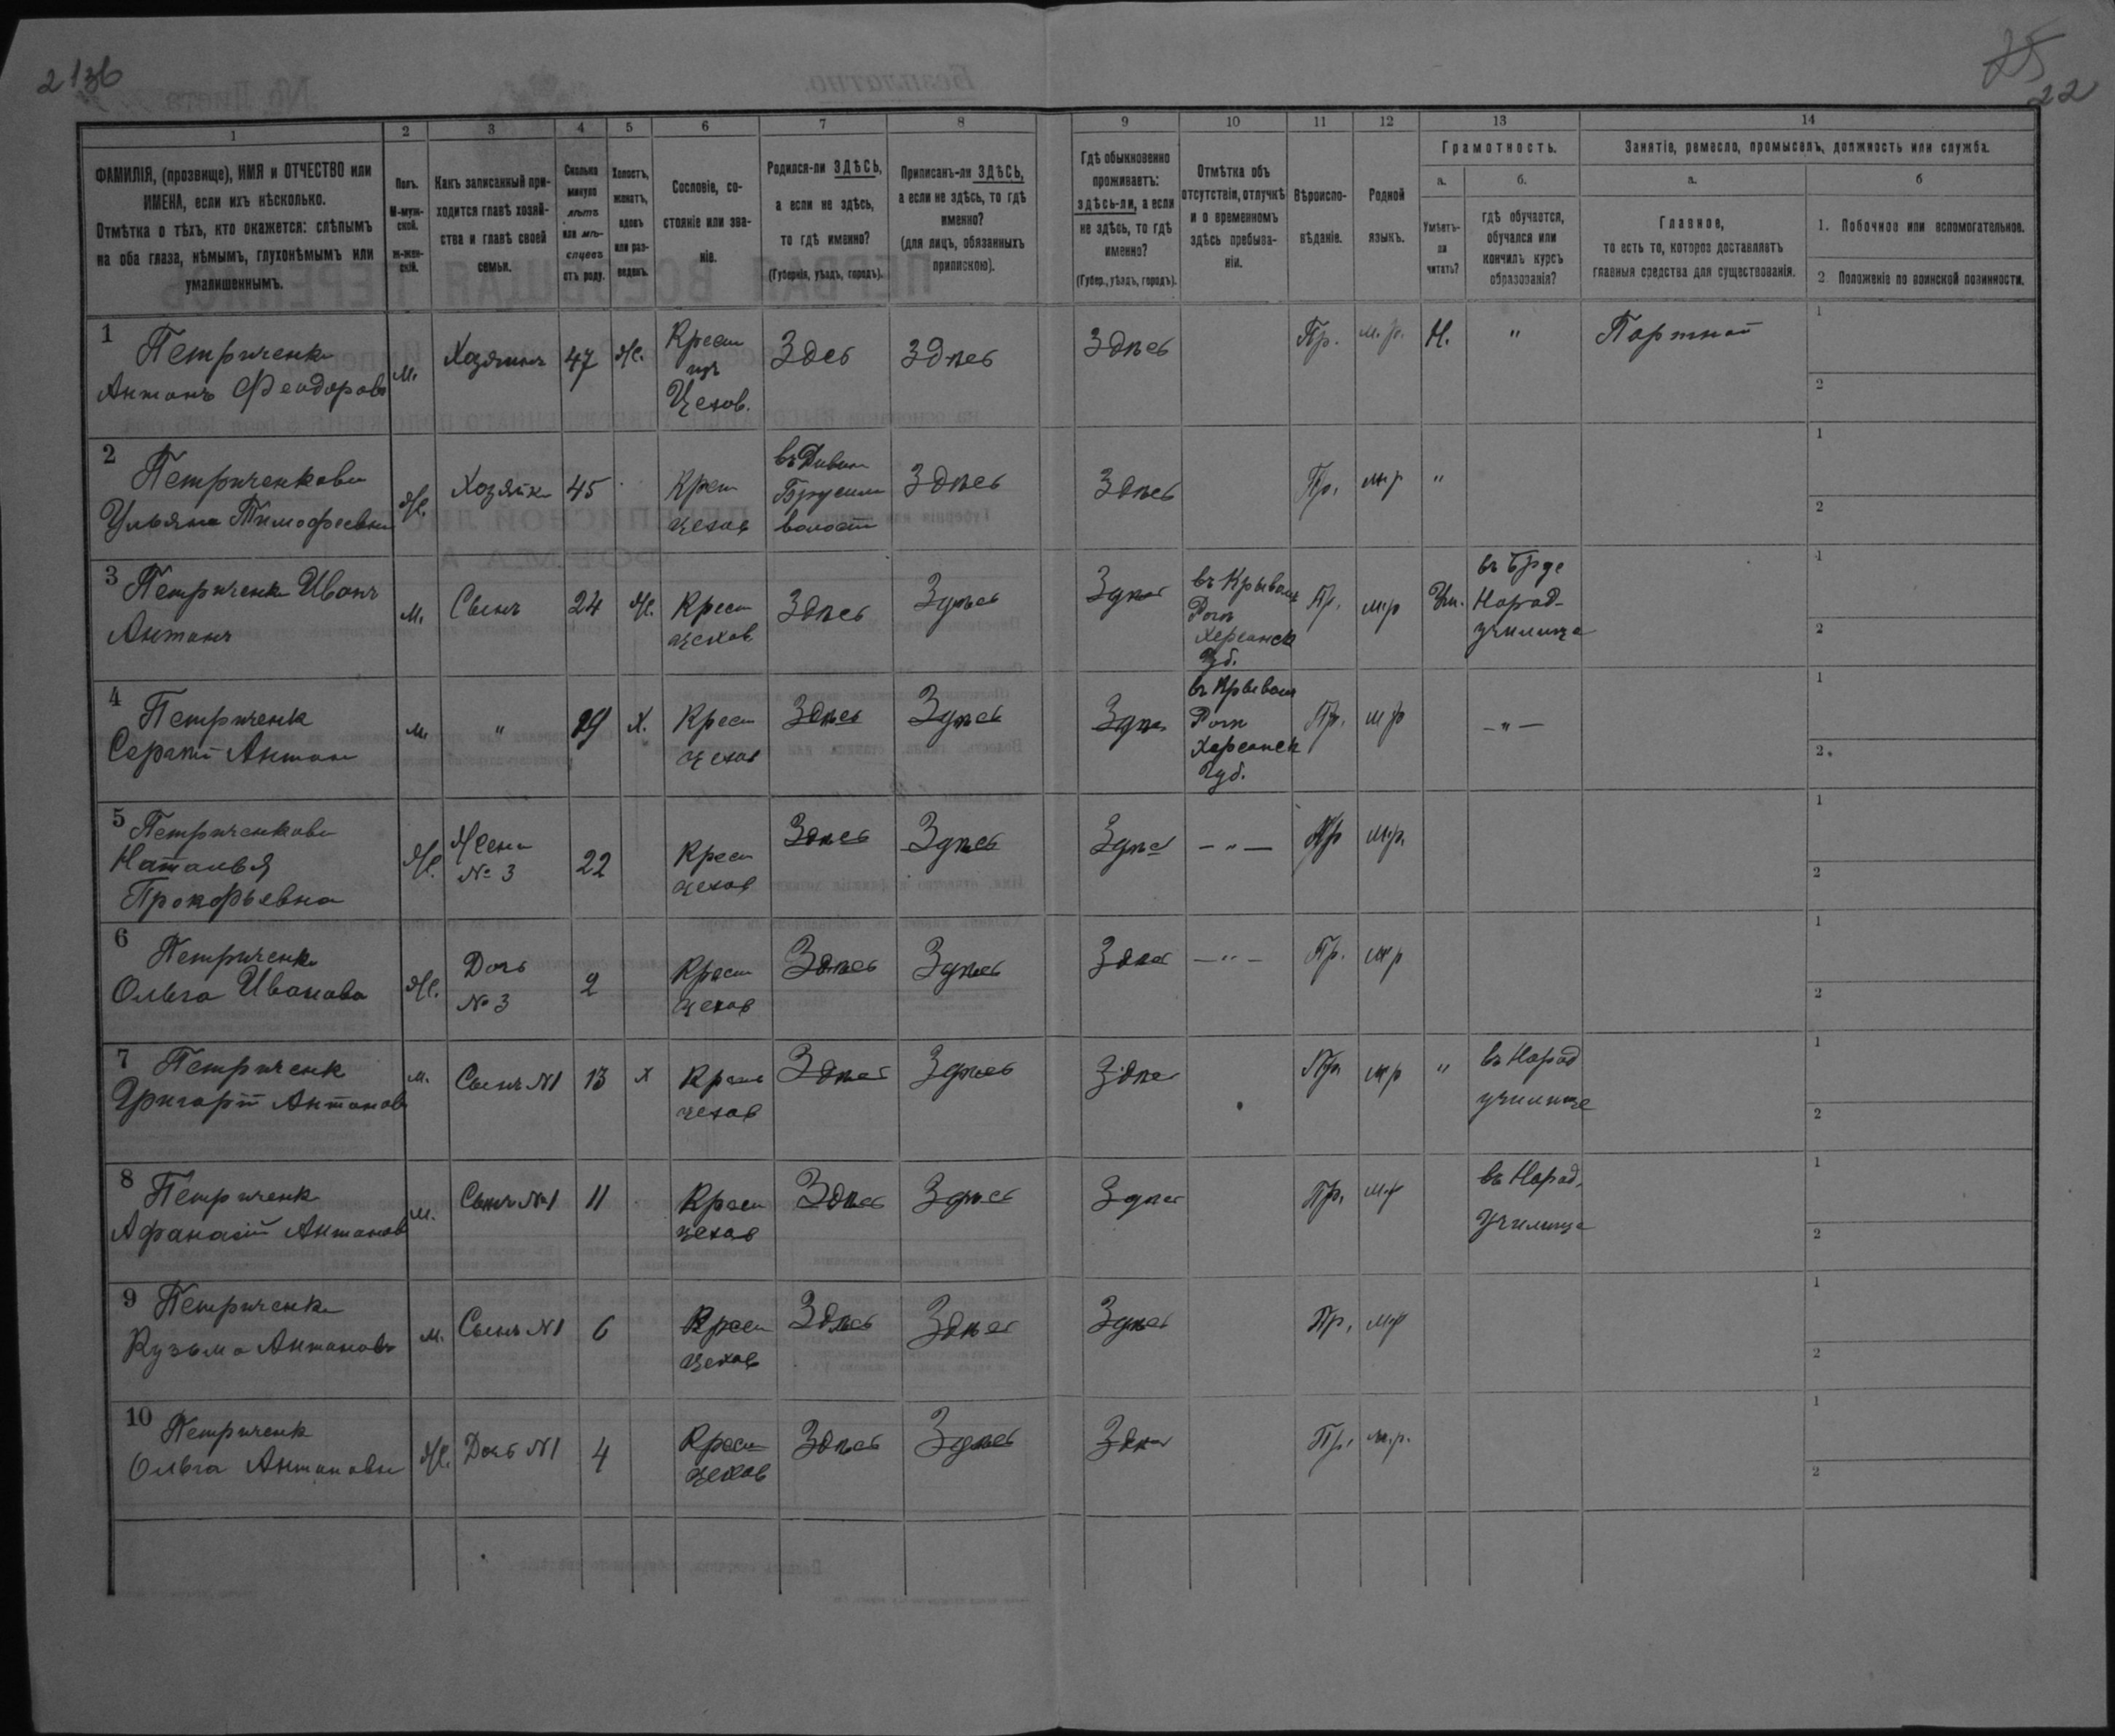 2136
22
1 2 3 4 5 6 7 8 9 10 11 12 13 14
ФАМИЛІЯ, (прозвище), ИМЯ и ОТЧЕСТВО или
ИМЕНА, если ихъ нѣсколько.
Отмѣтка о тѣхъ, кто окажется: слѣпымъ
на оба глаза, нѣмымъ, глухонѣмымъ или
умалишеннымъ.
Полъ.
М-муж-
ской.
ж-жен-
скій.
Какъ записанный при-
ходится главѣ хозяй-
ства и главѣ своей
семьи.
Сколько
минуло
лѣтъ
или мѣ-
сяцевъ
отъ роду.
Холостъ,
женатъ,
вдовъ
или раз-
веденъ.
Сословіе, со-
стояніе или зва-
ніе.
Родился-ли ЗДѢСЬ,
а если не здѣсь,
то гдѣ именно?
(Губернія, уѣздъ, городъ).
Приписанъ-ли ЗДѢСЬ,
а если не здѣсь, то гдѣ
именно?
(для лицъ, обязанныхъ
припискою).
Гдѣ обыкновенно
проживаетъ:
здѣсь-ли, а если
не здѣсь, то гдѣ
именно?
(Губер., уѣздъ, городъ).
Отмѣтка объ
отсутствіи, отлучкѣ
и о временномъ
здѣсь пребыва-
ніи.
Вѣроиспо-
вѣданіе.
Родной
языкъ.
Грамотность.
а.
Умѣетъ-
ли
читать?
б.
гдѣ обучается,
обучался или
кончилъ курсъ
образованія?
Занятіе, ремесло, промыселъ, должность или служба.
а.
Главное,
то есть то, которое доставляетъ
главныя средства для существованія.
б
1. Побочное или вспомогательное.
2 Положеніе по воинской повинности.
1 Петриченко
Антонъ Феодоровъ
М.
Хозяинъ
47
Ж.
Крест
изъ
Цехов.
Здесь
Здѣсь
Здѣсь
Пр.
м. р.
Н.
"
Портной
1
2
2 Петриченкова
Ульяна Тимофеевна
Ж.
Хозяйка
45
Крест
цехов
въ Дивин
Брусил
волости
Здѣсь
Здѣсь
Пр.
мр
"
1
2
3 Петриченко Иванъ
Антонъ
М.
Сынъ
24
Ж.
Крест
цехов
Здѣсь
Здѣсь
Здѣсь
въ Крывомъ
Рогѣ
Херсонск
Губ.
Пр.
мр
Ум.
въ
Народ-
училище
1
2
4 Петриченк
Сергѣй Антон
М.
"
19
Х.
Крест
цехов
Здѣсь
Здѣсь
Здѣсь
въ Крывом
Рогѣ
Херсонск
Губ.
Пр.
мр
- " -
1
2
5 Петриченкова
Наталья
Прокофьевна
Ж.
Жена
№ 3
22
Крест
цехов
Здѣсь
Здѣсь
Здѣсь
- " -
Пр
мр.
1
2
6 Петриченко
Ольга Иванова
Ж.
Дочь
№ 3
2
Крест
цехов
Здѣсь
Здѣсь
Здѣсь
- " -
Пр.
мр
1
2
7 Петриченк
Григорій Антоновъ
М.
Сынъ №1
13
Х
Крест
цехов
Здѣсь
Здѣсь
Здѣсь
Пр.
мр
"
въ Народ
училище
1
2
8 Петриченк
Афанасій Антоновъ
М.
Сынъ №1
11
Крест
цехов
Здѣсь
Здѣсь
Здѣсь
Пр.
мр
въ Народ.
Училище
1
2
9 Петриченко
Кузьма Антоновъ
М.
Сынъ №1
6
Крест
цехов
Здѣсь
Здѣсь
Здѣсь
Пр.
мр
1
2
10 Петриченк
Ольга Антонова
Ж.
Дочь №1
4
Крест
цехов
Здѣсь
Здѣсь
Здѣсь
Пр.
м.р.
1
2